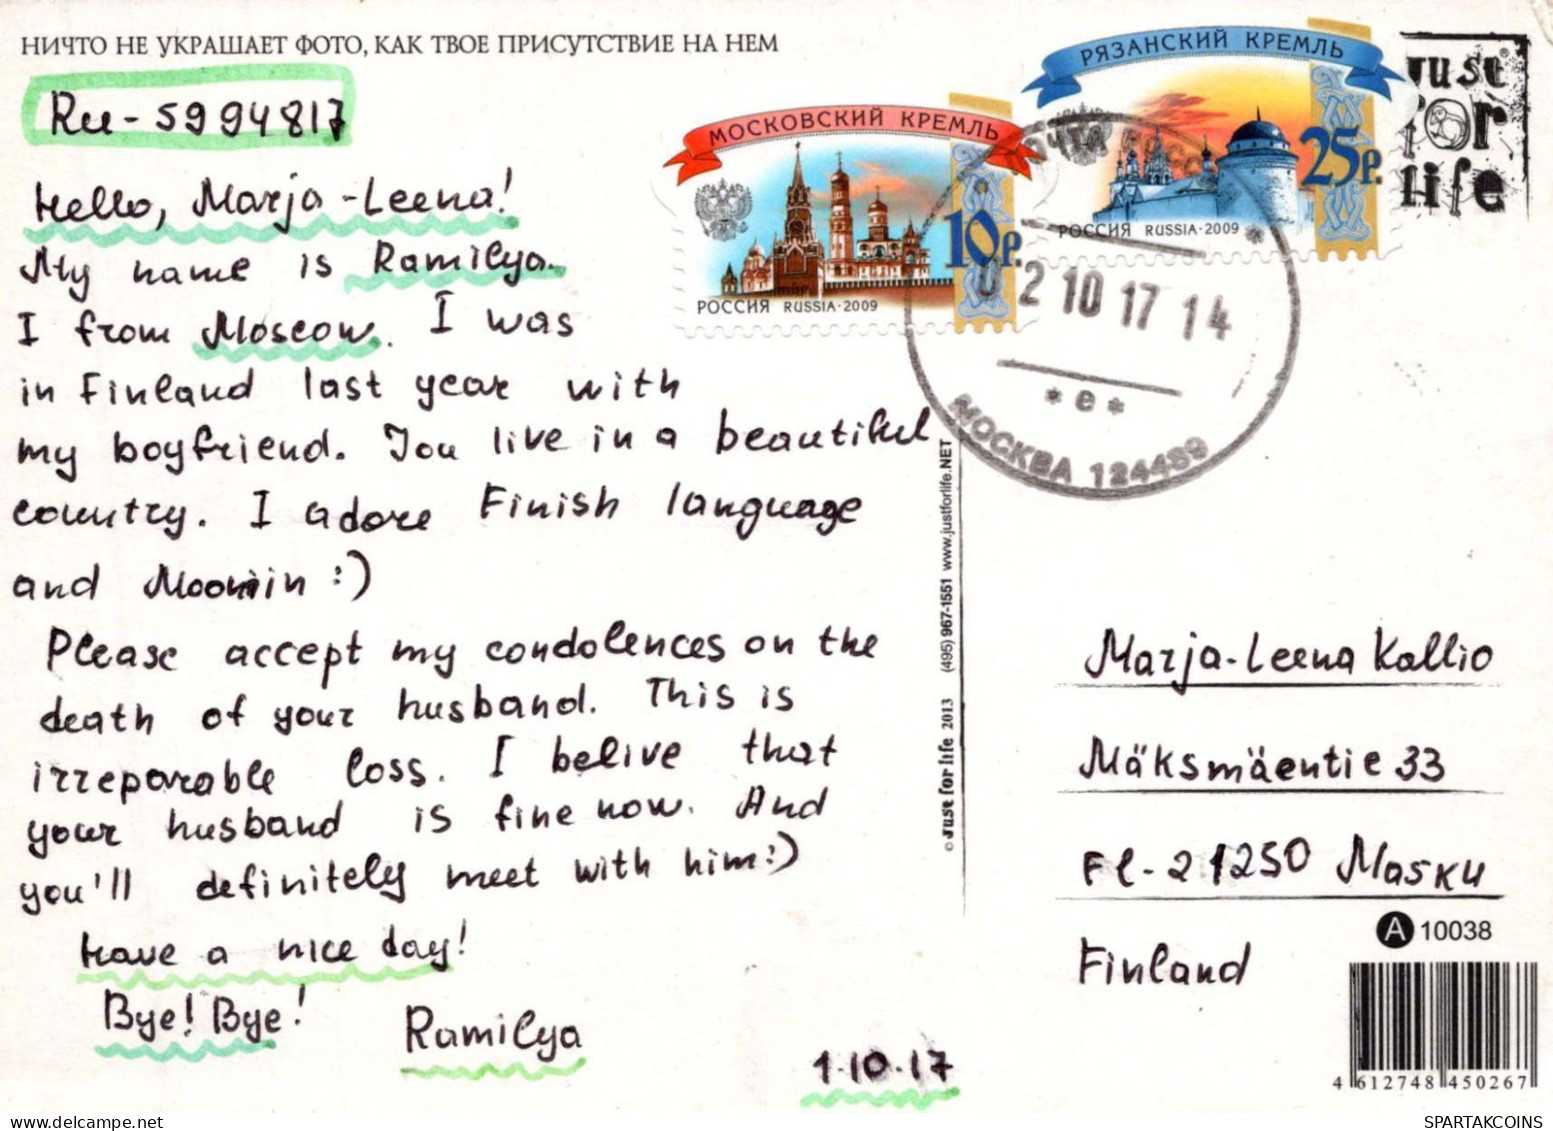 НИЧТО НЕ УКРАШАЕТ ФОТО, КАК ТВОЕ ПРИСУТСТВИЕ НА НЕМ
Ru-5994817
Hello, Marja-Leena!
My name is Ramilya.
I from Moscow. I was
in Finland last year with
my boyfriend. You live in a beautiful
country. I adore Finish language
and Moomin :)
Please accept my condolences on the
death of your husband. This is
irreparable loss. I belive that
your husband is fine now. And
you'll definitely meet with him:)
Have a nice day!
Bye! Bye!
Ramilya
1.10.17
МОСКОВСКИЙ КРЕМЛЬ
10р.
РОССИЯ RUSSIA·2009
РЯЗАНСКИЙ КРЕМЛЬ
25р.
РОССИЯ RUSSIA·2009
Just
for
life
02 10 17 14
* е *
МОСКВА 124489
© Just for life 2013 (495) 967-1551 www.justforlife.NET
Marja-Leena Kallio
Mäksmäentie 33
Fl-21250 Masku
Finland
A 10038
4 612748 450267
SPARTAKCOINS